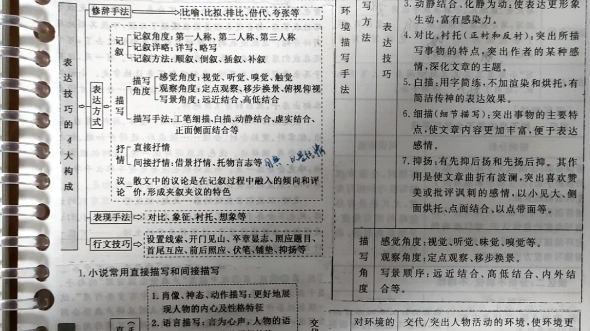 表达技巧的4大构成
修辞手法
比喻、比拟、排比、借代、夸张等
表达方式
记叙
记叙角度:第一人称、第二人称、第三人称
记叙详略:详写、略写
记叙方法:顺叙、倒叙、插叙、补叙
描写
描写角度
感觉角度:视觉、听觉、嗅觉、触觉
观察角度:定点观察、移步换景、俯视仰视
写景角度:远近结合、高低结合
描写手法:工笔细描、白描、动静结合、虚实结合、
正面侧面结合等
抒情
直接抒情
间接抒情:借景抒情、托物言志等
议论
散文中的议论是在记叙过程中融入的倾向和评
价,形成夹叙夹议的特色
表现手法
对比、象征、衬托、想象等
行文技巧
设置线索、开门见山、卒章显志、照应题目、
首尾互应、前后照应、伏笔、铺垫、抑扬等
1.小说常用直接描写和间接描写
1.肖像、神态、动作描写:更好地展
现人物的内心及性格特征
2.语言描写:言为心声,人物的语
环境描写手法
写方法
表达技巧
3.动静结合、化静为动:使表达更形象
生动,富有感染力。
4.对比、衬托(正衬和反衬):突出所描
写事物的特点,突出作者的某种感
情,深化文章的主题。
5.白描:用字简练,不加渲染和烘托,有
简洁传神的表达效果。
6.细描(细节描写):突出事物的主要特
点,使文章内容更加丰富,便于表达
感情。
7.抑扬:有先抑后扬和先扬后抑。其作
用是使文章曲折有波澜,突出喜欢赞
美或批评讽刺的感情,以小见大、侧
面烘托、点面结合、以点带面等。
描写角度
感觉角度:视觉、听觉、味觉、嗅觉等。
观察角度:定点观察、移步换景。
写景顺序:远近结合、高低结合、内外结
合等。
对环境的
交代/突出人物活动的环境,使环境更